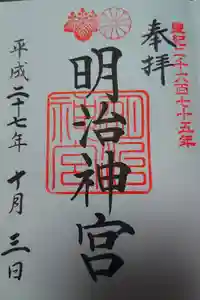 皇紀二千六百七十五年
奉拝
明治神宮
平成二十七年 十月 三日